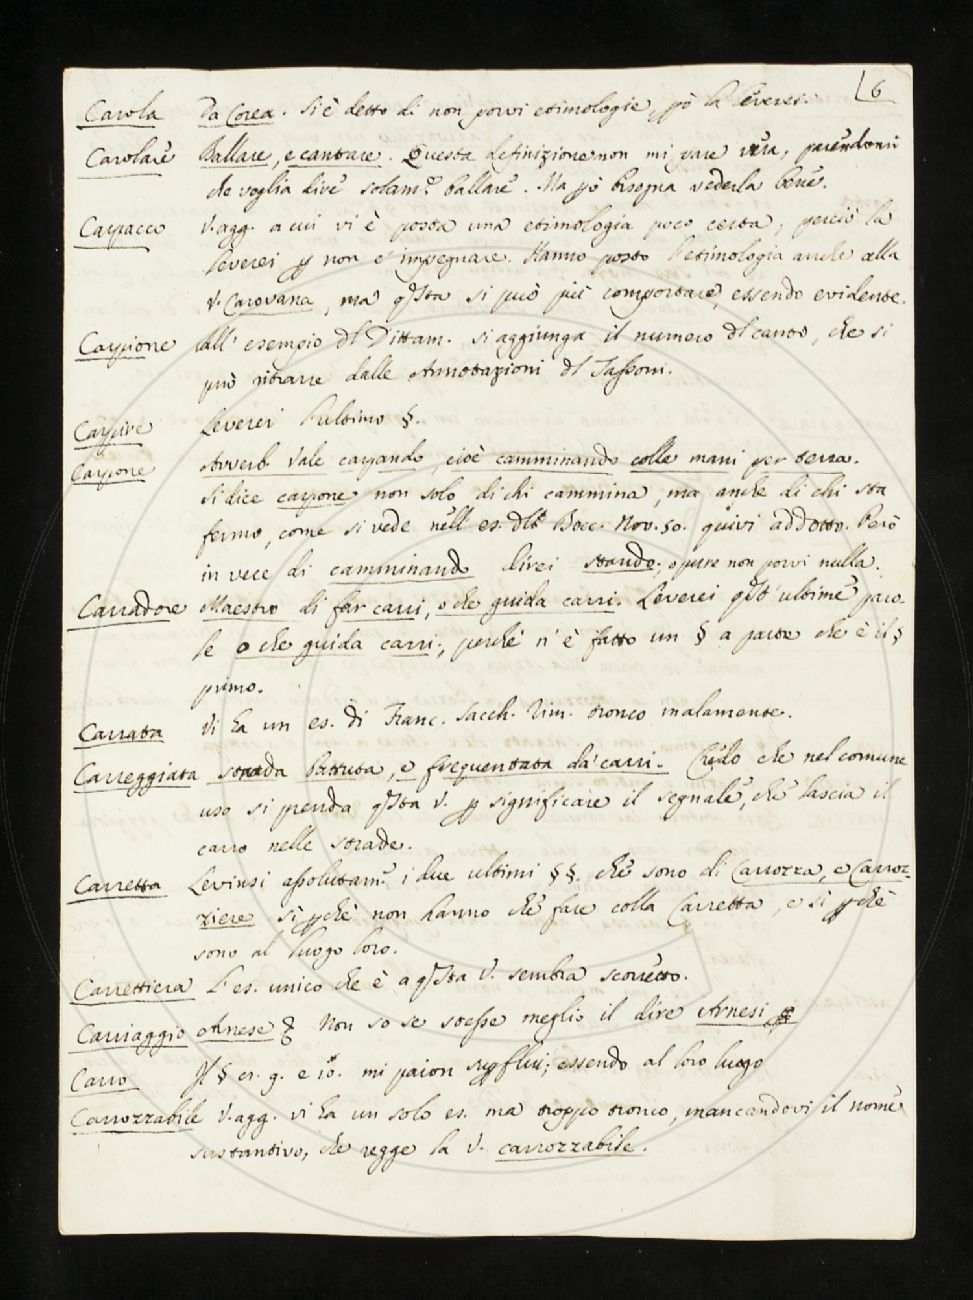 6
Carola Da Corea. Si è detto di non porvi etimologie, pò la leverei.
Carolare Ballare, e cantare. Questa definizione non mi pare vera, parendomi
che voglia dire solam.e ballare. Ma pò bisogna vederla bene.
Carpacco V. agg. a cui vi è posta una etimologia poco certa, perciò la
leverei p non c'impegnare. Hanno posto l'etimologia anche alla
V. Carovana, ma qsta si può più comportare, essendo evidente.
Carpione All'esempio dl Dittam. si aggiunga il numero dl canto, che si
può ritrarre dalle Annotazioni dl Tassoni.
Carpire Leverei l'ultimo §.
Carpone Avverb. Vale carpando, cioè camminando colle mani per terra.
Si dice carpone non solo di chi cammina, ma anche di chi sta
fermo, come si vede nell es. dl Bocc. Nov. 50. quivi addotto. Però
in vece di camminando direi stando, opure non porvi nulla.
Carradore Maestro di far carri, o che guida carri. Leverei qst'ultime paro-
le o che guida carri, perchè n'è fatto un § a parte che è il §
primo.
Carrata Vi ha un es. di Franc. Sacch. rim. tronco malamente.
Carreggiata strada battuta, e frequentata da' carri. Credo che nel comune
uso si prenda qsta V. p significare il segnale, che lascia il
carro nelle strade.
Carretta Levinsi assolutam.e i due ultimi §§. che sono di Carrozza, e Carroz-
ziere sì pchè non hanno che fare colla Carretta, e sì pchè
sono al luogo loro.
Carrettiera L'es. unico che è a qsta V. sembra scorretto.
Carriaggio Arnese &c Non so se stesse meglio il dire Arnesi
Carro Il § er. g. e 10. mi paion supflui; essendo al loro luogo
Carrozzabile V. agg. vi ha un solo es. ma troppo tronco, mancandovi il nome
sustantivo, che regge la V. carrozzabile.